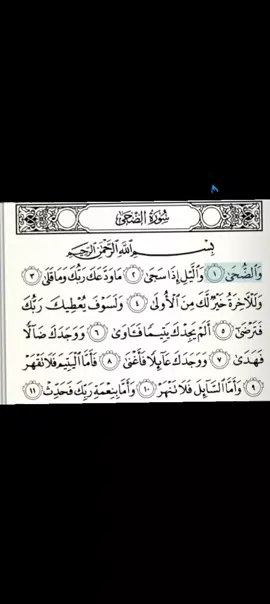 سُورَةُ الضُّحَىٰ
بِسْمِ اللَّهِ الرَّحْمَٰنِ الرَّحِيمِ
وَٱلضُّحَىٰ ١ وَٱلَّيۡلِ إِذَا سَجَىٰ ٢ مَا وَدَّعَكَ رَبُّكَ وَمَا قَلَىٰ ٣
وَلَلۡأٓخِرَةُ خَيۡرٞ لَّكَ مِنَ ٱلۡأُولَىٰ ٤ وَلَسَوۡفَ يُعۡطِيكَ رَبُّكَ
فَتَرۡضَىٰٓ ٥ أَلَمۡ يَجِدۡكَ يَتِيمٗا فَـَٔاوَىٰ ٦ وَوَجَدَكَ ضَآلّٗا
فَهَدَىٰ ٧ وَوَجَدَكَ عَآئِلٗا فَأَغۡنَىٰ ٨ فَأَمَّا ٱلۡيَتِيمَ فَلَا تَقۡهَرۡ
٩ وَأَمَّا ٱلسَّآئِلَ فَلَا تَنۡهَرۡ ١٠ وَأَمَّا بِنِعۡمَةِ رَبِّكَ فَحَدِّثۡ ١١